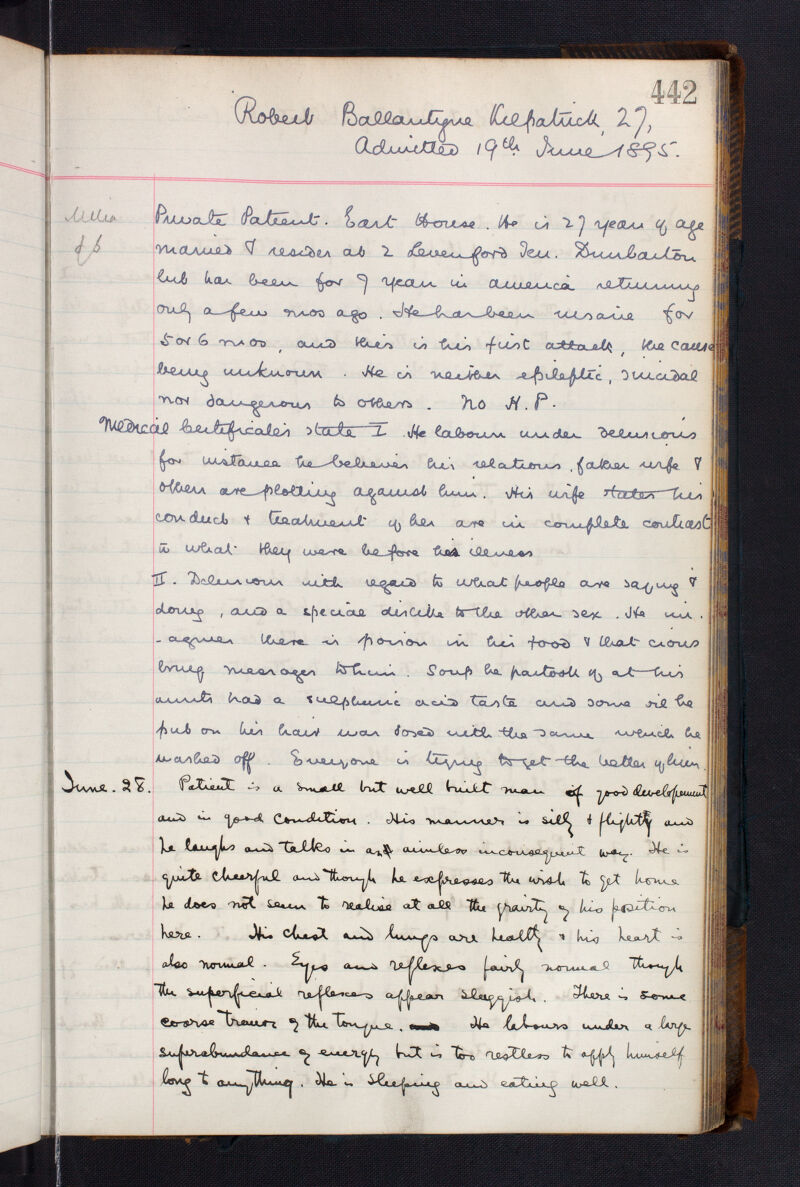 442
Robert Ballantyne Kilpatrick, 27,
Admitted 19th June 1895.
Private Patient. East House. He is 27 years of age
married & resides at 2 Levenford Ter. Dumbarton
but has been for 9 years in america returning
only a few mos ago. He has been insane for
5 or 6 mos, and this is his first attack, the cause
being unknown. He is neither epileptic, suicidal
nor dangerous to others. No H.P.
Medical Certificates state I He labours under delusions
for instance he believes his relations, father wife &
others are plotting against him. His wife states his
conduct & treatment of her are in complete contrast
to what they were before his illness
II. Delusions with regard to what people are saying &
doing, and a special dislike to the other sex. He im-
-agines there is poison in his food & that crows
bring messages to him. Soup he partook of at his
aunts had a sulphuric acid taste and some oil he
put on his hair was dosed with the same which he
washed off. Everyone is trying to get the better of him.
June. 28. Patient is a small but well built man of good developement
and in good condition. His manner is silly & flighty and
he laughs and talks in an aimless inconsequent way. He is
quite cheerful and though he expresses the wish to get home
he does not seem to realise at all the gravity of his position
here. His chest and lungs are healthy & his heart is
also normal. Eyes and reflexes fairly normal though
the superficial reflexes appear sluggish. There is some
coarse tremor of the tongue. He labours under a large
superabundance of energy but is too restless to apply himself
long to anything. He is sleeping and eating well.